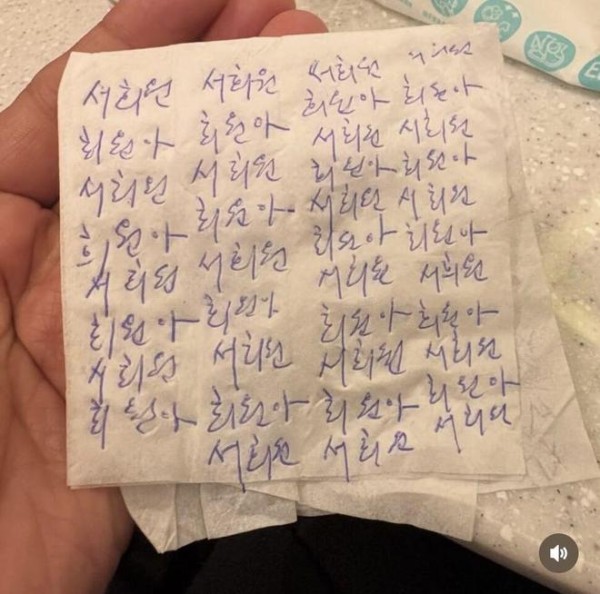 서희원 서희원 서희원 서희원
희원아 희원아
희원아 희원아 서희원 서희원
서희원 서희원 희원아 희원아
희원아 서희원 서희원
희원아 서희원 희원아 희원아
서희원 서희원 서희원
희원아 희원아 희원아 희원아
서희원 서희원 서희원 서희원
희원아 희원아 희원아 희원아
서희원 서희원 서희원